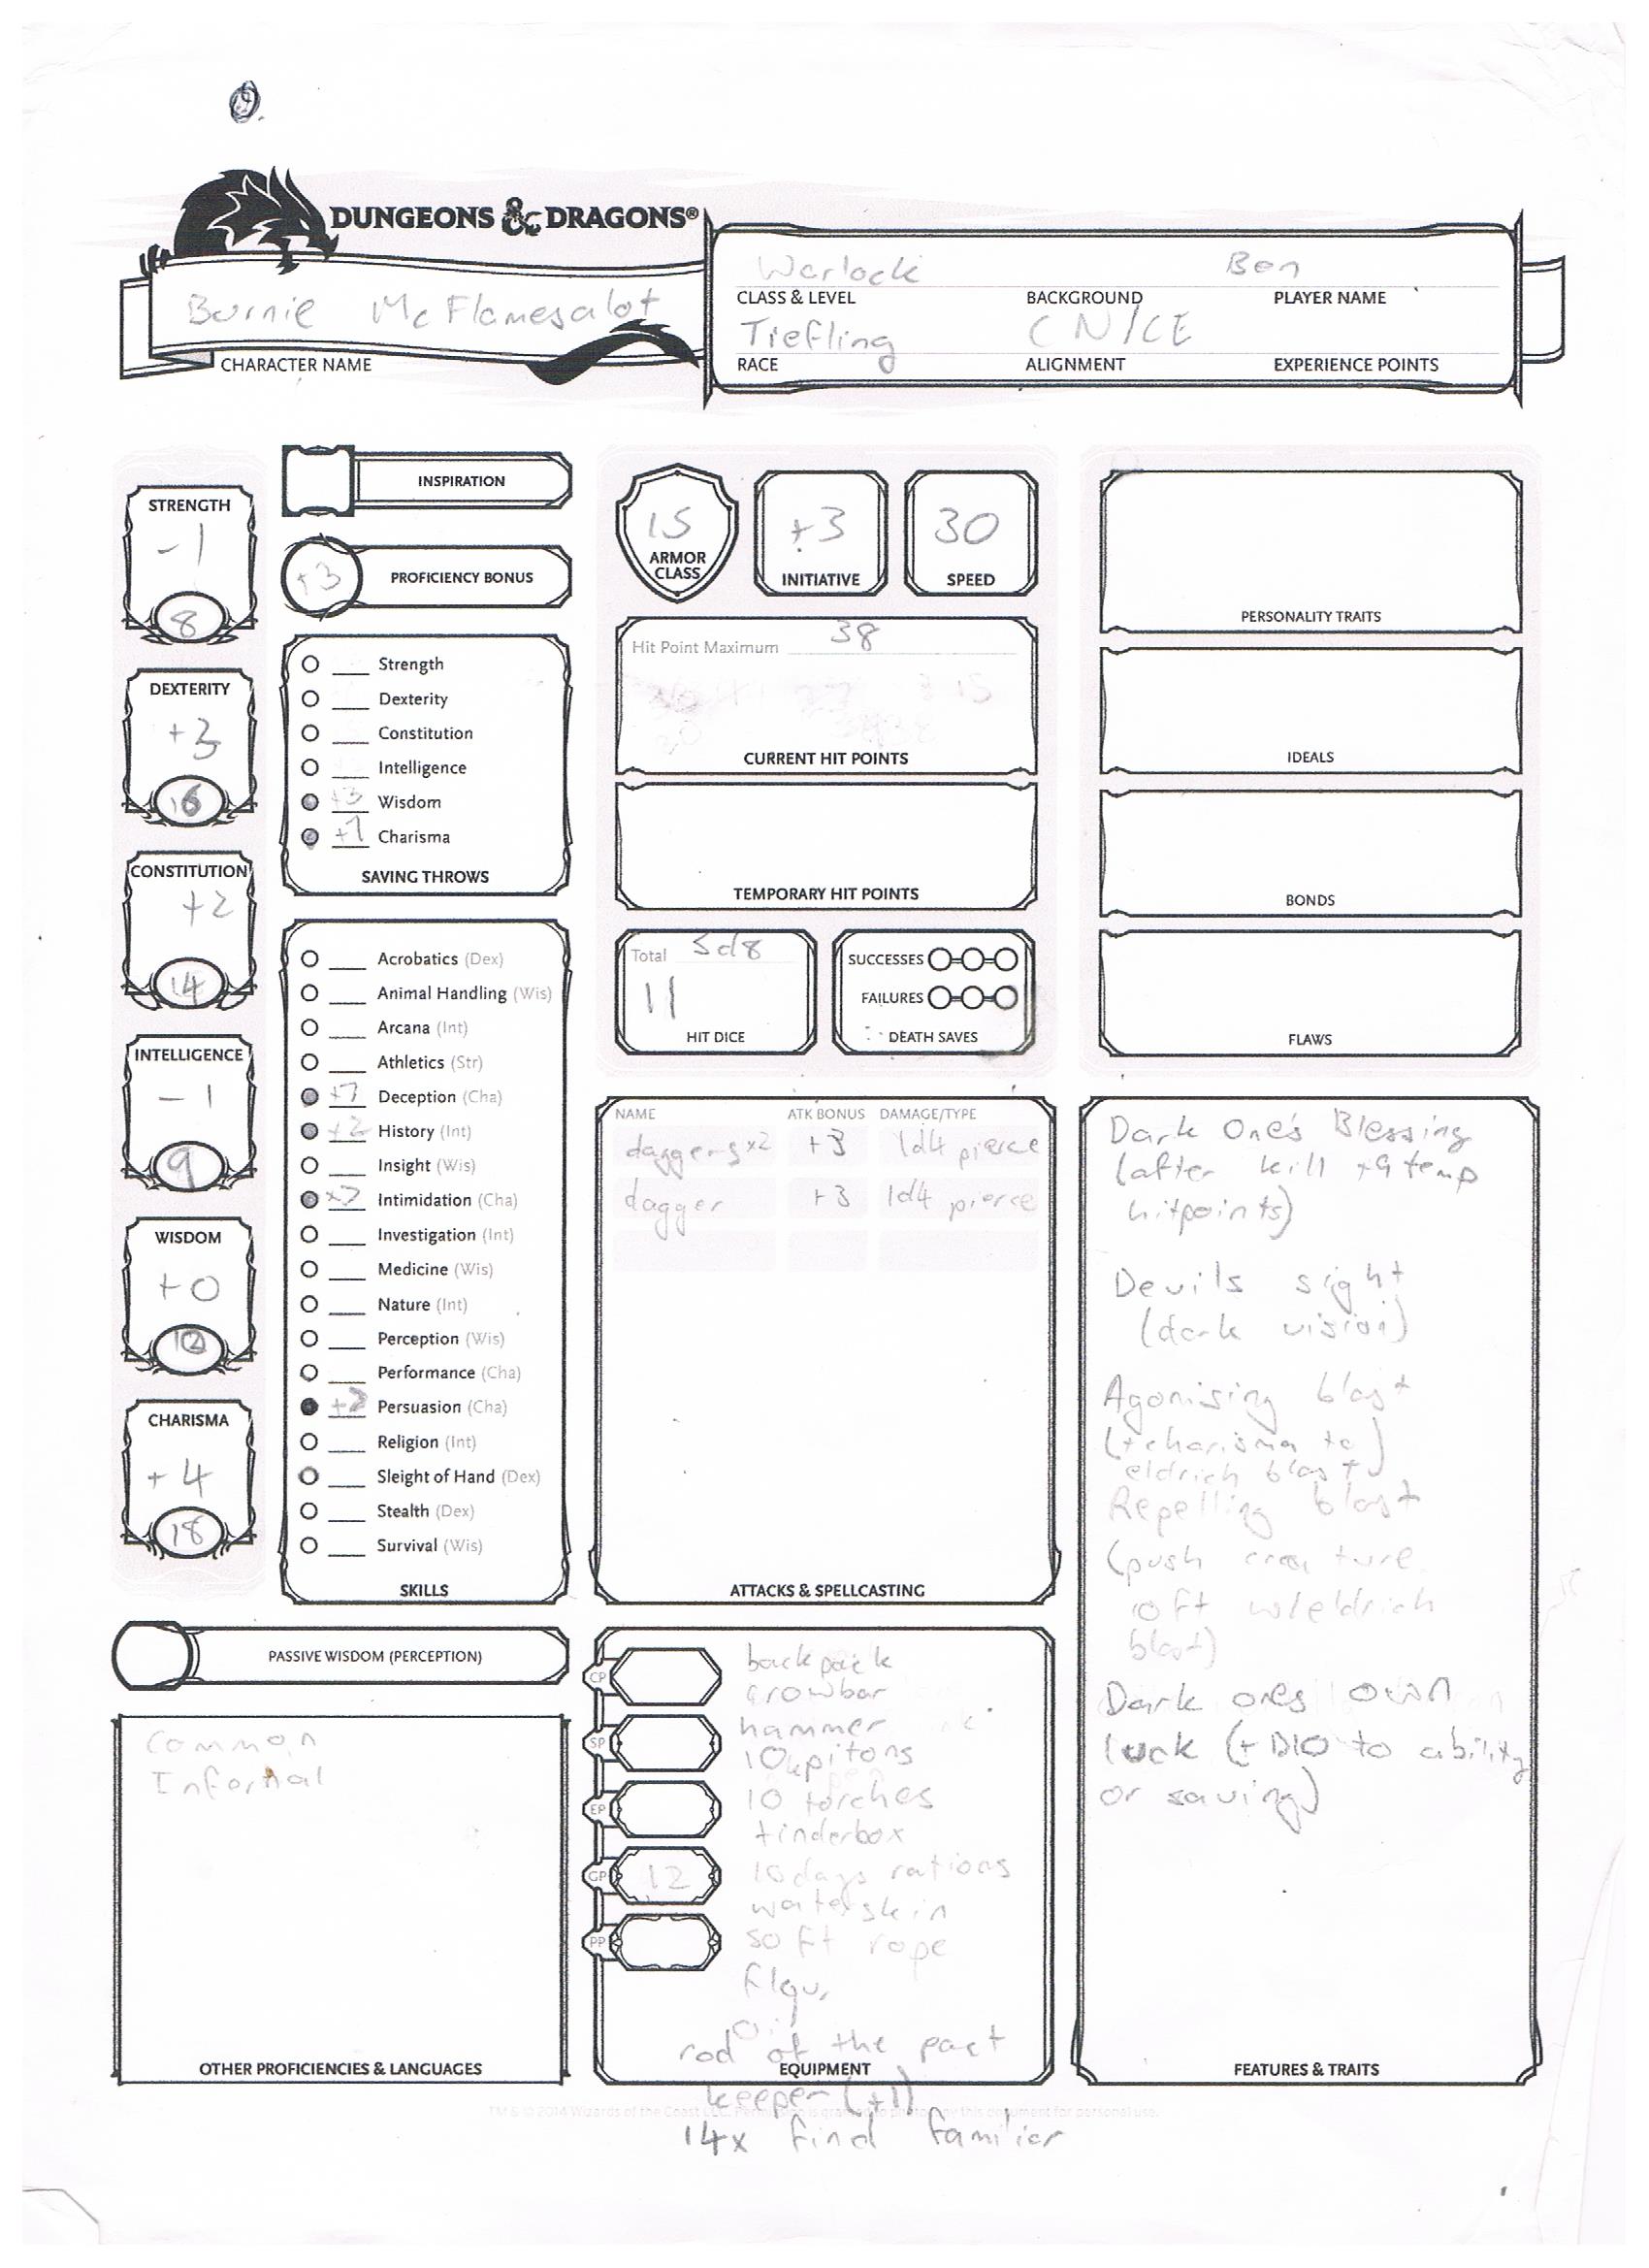 DUNGEONS & DRAGONS®
Burnie McFlamesalot
CHARACTER NAME
Warlock Ben
CLASS & LEVEL BACKGROUND PLAYER NAME
Tiefling CN/CE
RACE ALIGNMENT EXPERIENCE POINTS
STRENGTH
-1
8
DEXTERITY
+3
16
CONSTITUTION
+2
14
INTELLIGENCE
-1
9
WISDOM
+0
10
CHARISMA
+4
18
INSPIRATION
+3 PROFICIENCY BONUS
Strength
Dexterity
Constitution
Intelligence
+3 Wisdom
+7 Charisma
SAVING THROWS
Acrobatics (Dex)
Animal Handling (Wis)
Arcana (Int)
Athletics (Str)
+7 Deception (Cha)
+2 History (Int)
Insight (Wis)
+7 Intimidation (Cha)
Investigation (Int)
Medicine (Wis)
Nature (Int)
Perception (Wis)
Performance (Cha)
Persuasion (Cha)
Religion (Int)
Sleight of Hand (Dex)
Stealth (Dex)
Survival (Wis)
SKILLS
PASSIVE WISDOM (PERCEPTION)
Common
Infernal
OTHER PROFICIENCIES & LANGUAGES
15
ARMOR
CLASS
+3
INITIATIVE
30
SPEED
Hit Point Maximum 38
CURRENT HIT POINTS
TEMPORARY HIT POINTS
Total 5d8
11
HIT DICE
SUCCESSES
FAILURES
DEATH SAVES
NAME ATK BONUS DAMAGE/TYPE
daggers x2 +3 1d4 pierce
dagger +3 1d4 pierce
ATTACKS & SPELLCASTING
CP
SP
EP
GP 12
PP
backpack
crowbar
hammer
10 pitons
10 torches
tinderbox
10 days rations
waterskin
50 ft rope
Oil
rod of the pact
EQUIPMENT
keeper (+1)
14x find familiar
TM & © 2014 Wizards of the Coast LLC. Permission is granted to photocopy this document for personal use.
PERSONALITY TRAITS
IDEALS
BONDS
FLAWS
Dark One's Blessing
(after kill +9 temp
hitpoints)
Devils sight
(dark vision)
Agonising blast
(+ charisma to
eldrich blast)
Repelling blast
(push creature
10ft w/eldrich
blast)
Dark ones own
luck (+ D10 to ability
or saving)
FEATURES & TRAITS